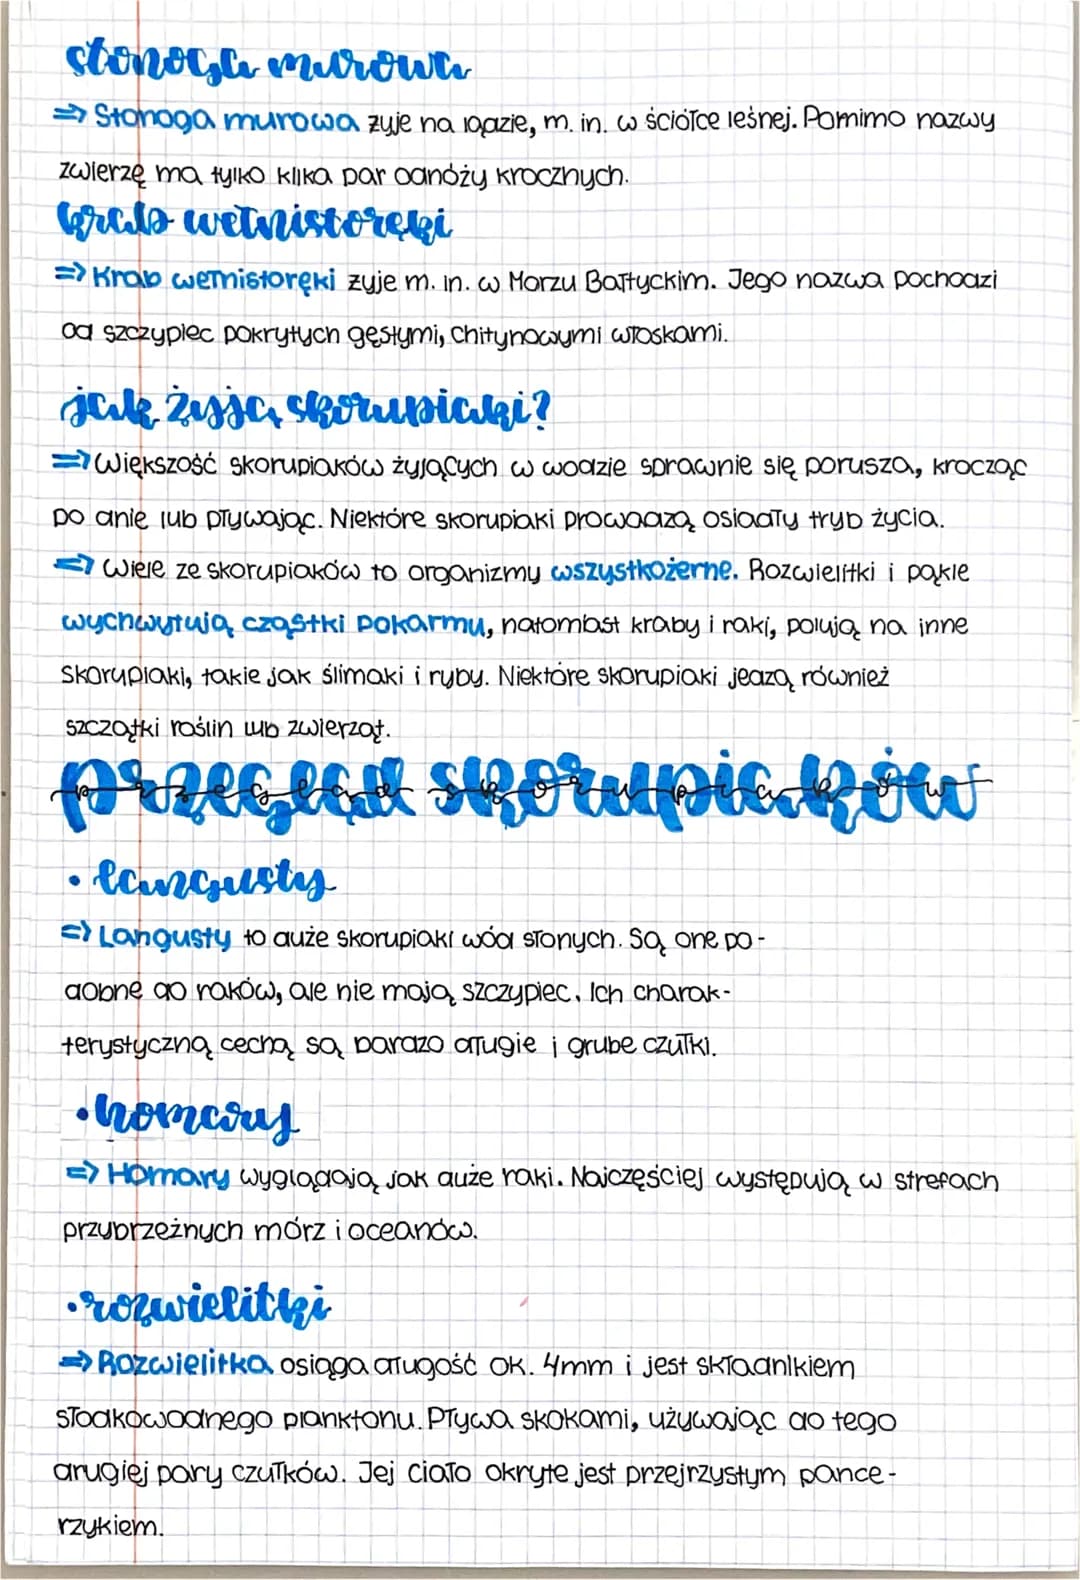 stonoga murowa
=> Stonoga murowa żyje na lądzie, m. in. w ściółce leśnej. Pomimo nazwy
zwierzę ma tylko kilka par odnóży krocznych.
krab wełnistoręki
=> Krab wełnistoręki żyje m. in. w Morzu Bałtyckim. Jego nazwa pochodzi
od szczypiec pokrytych gęstymi, chitynowymi włoskami.
jak żyją skorupiaki?
=> Większość skorupiaków żyjących w wodzie sprawnie się porusza, krocząc
po dnie lub pływając. Niektóre skorupiaki prowadzą osiadły tryb życia.
=> Wiele ze skorupiaków to organizmy wszystkożerne. Rozwielitki i pąkle
wychwytują cząstki pokarmu, natomiast kraby i raki, polują na inne
skorupiaki, takie jak ślimaki i ryby. Niektóre skorupiaki jedzą również
szczątki roślin lub zwierząt.
przegląd skorupiaków
• langusty
=> Langusty to duże skorupiaki wód słonych. Są one po-
dobne do raków, ale nie mają szczypiec. Ich charak-
terystyczną cechą są bardzo długie i grube czułki.
• homary
=> Homary wyglądają jak duże raki. Najczęściej występują w strefach
przybrzeżnych mórz i oceanów.
• rozwielitki
=> Rozwielitka osiąga długość ok. 4mm i jest składnikiem
słodkowodnego planktonu. Pływa skokami, używając do tego
drugiej pary czułków. Jej ciało okryte jest przejrzystym pance-
rzykiem.